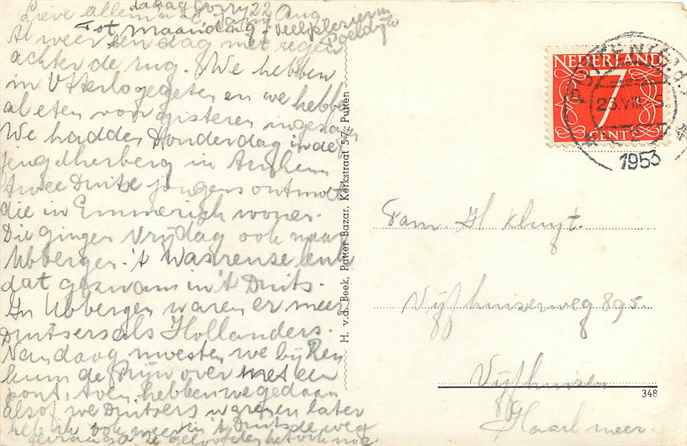 Lieve allemaal 22 Aug
Tot Maandag - veel plezier in
Al weer een dag met regen
achter de rug. We hebben
in Otterlo gegeten en we hebben
al eten van gisteren
We hadden Donderdag in de
jeugdherberg in Arnhem
twee Duitse jongens ontmoet
die in Emmerich wonen.
Die gingen Vrijdag ook naar
Ubbergen. 't Was reuse leuk
dat in 't Duits.
In Ubbergen waren er meer
Duitsers als Hollanders.
Vandaag moesten we bij Ren
kum de Rijn over met een
pont, toen hebben we gedaan
alsof we Duitsers waren later
H. v.d. Beek, Putter Bazar, Kerkstraat 5-7, Putten
NEDERLAND
7
CENT
1953
Fam. H Kluyt.
Vijfhuizerweg 895
Vijfhuizen
Haarlemmer.
348